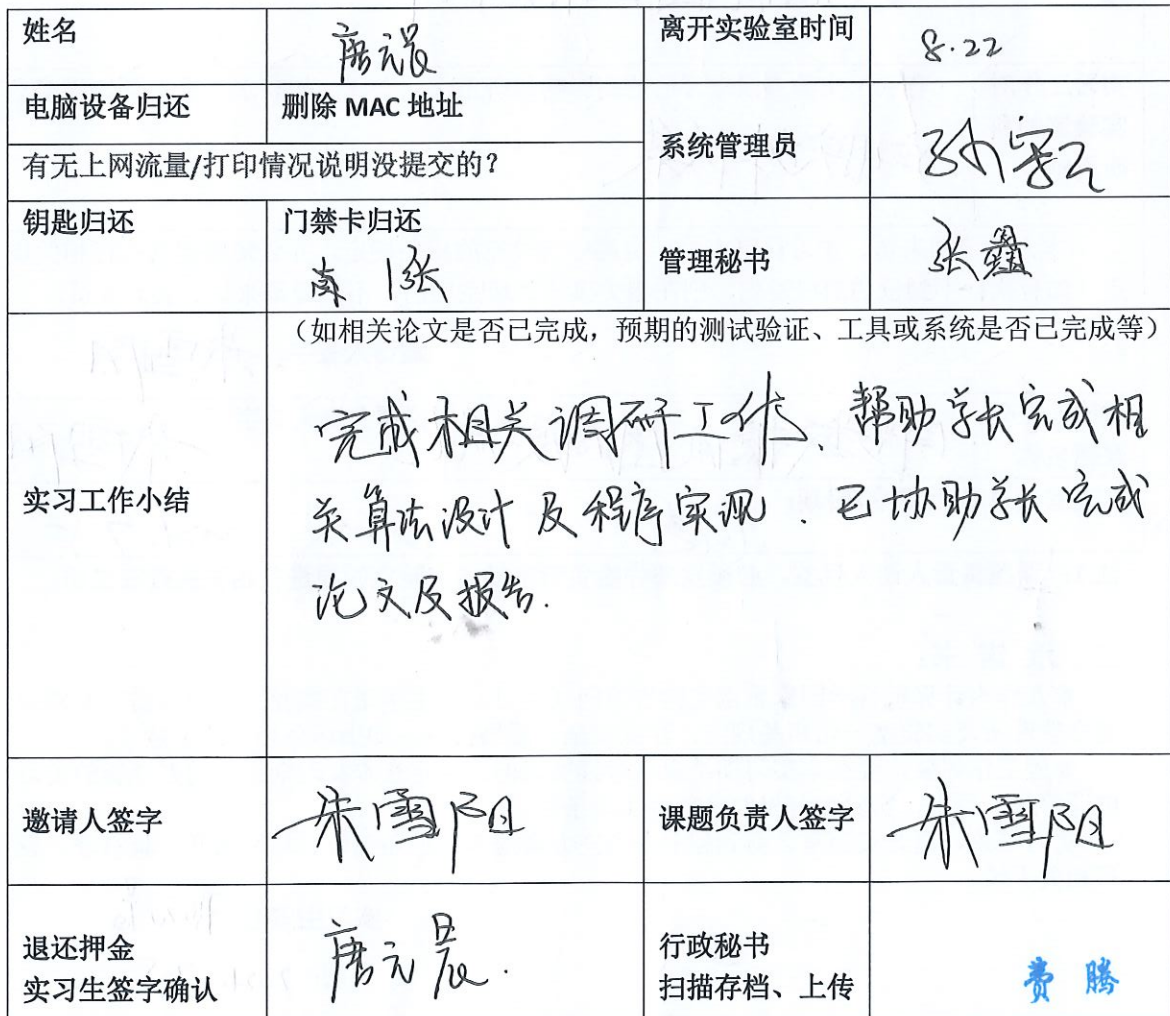 姓名 唐元晨 离开实验室时间 8.22
电脑设备归还 删除 MAC 地址
系统管理员
有无上网流量/打印情况说明没提交的？
钥匙归还 门禁卡归还
南 1张 管理秘书 张鑫
（如相关论文是否已完成，预期的测试验证、工具或系统是否已完成等）
完成相关调研工作、帮助学长完成相
实习工作小结
关算法设计及程序实现、已协助学长完成
论文及报告.
邀请人签字 朱雪阳 课题负责人签字 朱雪阳
退还押金 唐元晨. 行政秘书
实习生签字确认 扫描存档、上传 费腾